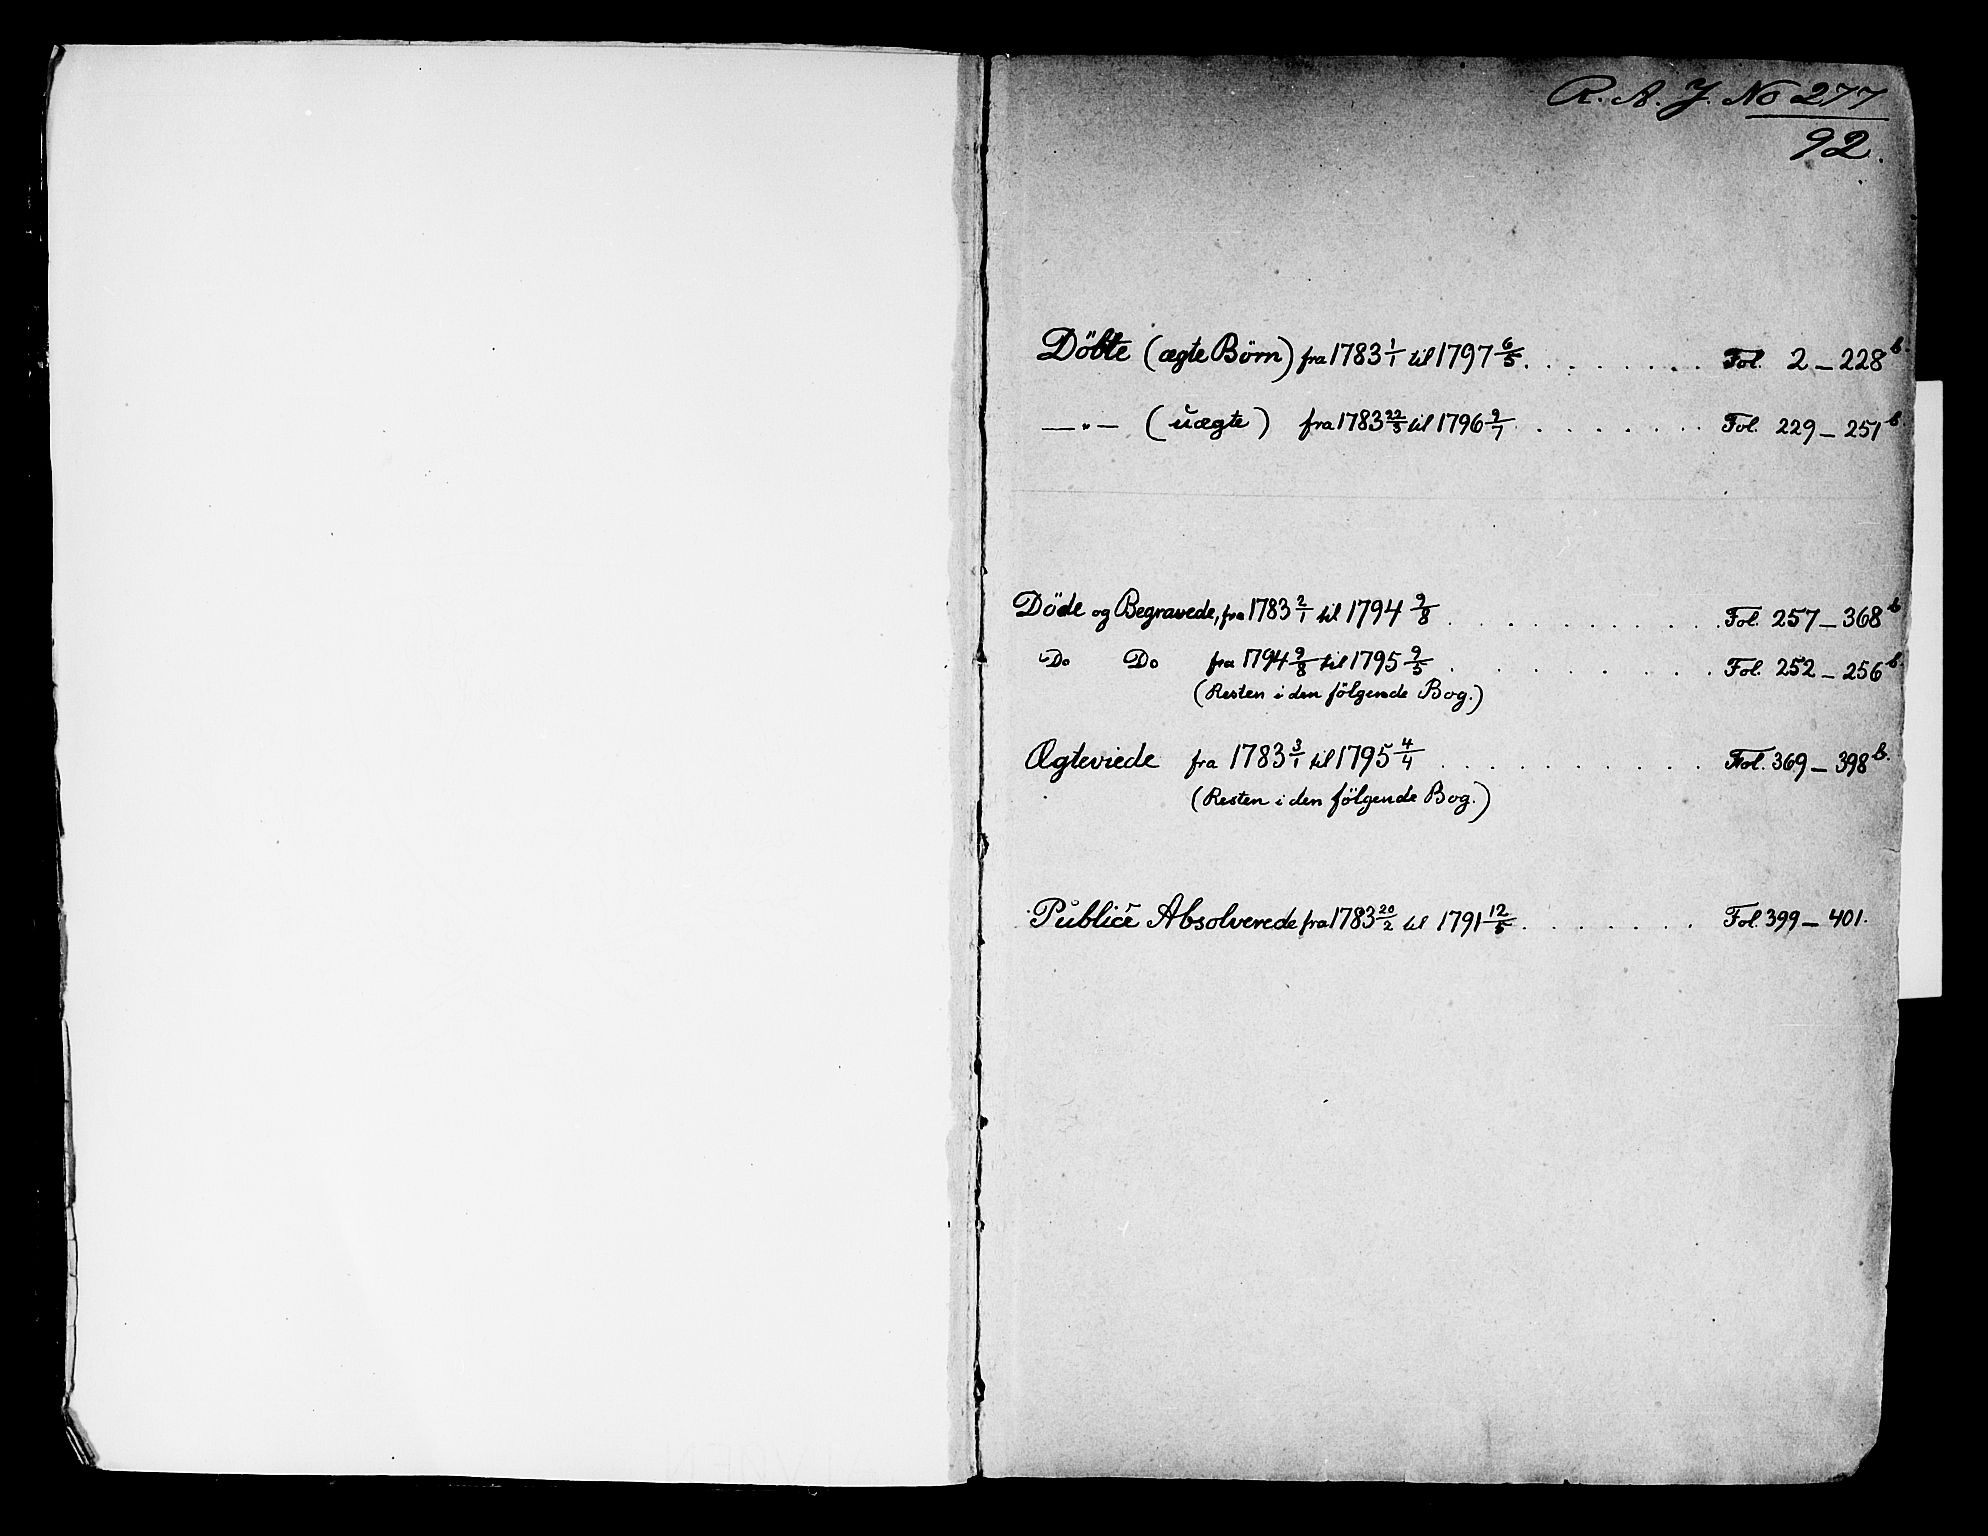 R. A. J. No 277
92.
Döbte (ægte Börn) fra 1783 1/1 til 1797 6/5. . . . . . . . Fol. 2 – 228 b.
— „ — (uægte) fra 1783 22/3 til 1796 9/7. . . . . . . . Fol. 229 – 251 b.
Döde og Begravede, fra 1783 2/1 til 1794 9/8 . . . . . . . . . . Fol. 257 – 368 b
Do Do fra 1794 9/8 til 1795 9/5 . . . . . . . . . Fol. 252 – 256 b.
(Resten i den fölgende Bog.)
Ægteviede fra 1783 3/1 til 1795 4/4 . . . . . . . . . . Fol. 369 – 398 b.
(Resten i den fölgende Bog.)
Publicè Absolverede fra 1783 20/2 til 1791 12/5 . . . . . . . Fol. 399 – 401.